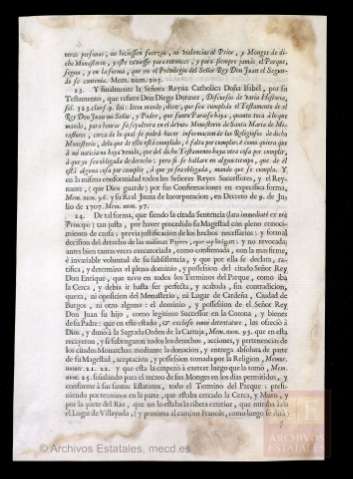 otras personas, no hiciessen fuerza, ni violencia al Prior, y Monges de dicho
Monasterio, y esto estuviesse para entonces, y para siempre jamàs, el Parque,
segun, y en la forma, que en el Privilegio del Señor Rey Don Juan el Segundo
se contenia. Mem. num. 
23. Y finalmente la Señora Reyna Catholica Doña Isabèl, por su
Testamento, que refiere Don Diego Dormer, Discursos de varia Historia,
Item mando, dice, que sea cumplido el Testamento de el
Rey Don Juan mi Señor, y Padre, que Santo Parayso haya, quanto toca à lo que
mandò, para honrar su sepultura en el devoto Monasterio de Santa Maria de Miraflores,
cerca de lo qual se podrà hacer informacion de los Religiosos de dicho
Monasterio, de lo que de ello està cumplido, è falta por cumplir: è como quiera que
à mi noticia no haya venido, que del dicho Testamento haya otra cosa por cumplir,
à que yo sea obligada de derecho; pero si se hallare en algun tiempo, que de èl
està alguna cosa por cumplir, à que yo sea obligada, mando que se cumpla. Y
en la misma conformidad todos los Señores Reyes Successores, y el Reynante,
(que Dios guarde) por sus Confirmaciones en especifica forma,
Mem. num. 96. y su Real Junta de Incorporacion, en Decreto de 9. de Julio
de 1707. Mem. num. 97.
24. De tal forma, que siendo la citada Sentencia (lata immediatè ex ore
Principis) tan justa, por haver procedido su Magestad con pleno conocimiento
de causa; previa justificacion de los hechos necessarios; y formal
decision del derecho de las mismas Partes, que oy litigan: y no revocada;
antes bien tantas veces executoriada, como confirmada, con la mas firme,
è invariable voluntad de su subsistencia, y que por ella se declara, ratifica,
y determina el pleno dominio, y possession del citado Señor Rey
Don Enrique, que tuvo en todos los Terminos del Parque, como iba
la Cerca, y debia ir hasta ser perfecta, y acabada, sin contradicion,
quexa, ni oposicion del Monasterio, ni Lugar de Cardeña, Ciudad de
Burgos, ni otro alguno: el dominio, y possession de el Señor Rey
Don Juan su hijo, como legitimo Successor en la Corona, y bienes
de su Padre: que en este estado, è excluso omni detentatore, los ofreciò à
Dios, y donò à la Sagrada Orden de la Cartuja, Mem. num. 95. que en ella
recayeron, y se subrogaron todos los derechos, acciones, y pertenencias de
los citados Monarchas mediante la donacion, y entrega absoluta de parte
de su Magestad, aceptacion, y possession tomada por la Religion, Memor.
num. 21. 22. y que esta la empezò à exercer luego que la tomò, Mem.
num. 25. señalando para el recreo de sus Monges en los dias permitidos, y
conforme à sus santos Estatutos, todo el Termino del Parque: prefiniendo
por terminos en la parte, que estaba cercado la Cerca, y Muro, y
por la parte del Rio, que no lo estaba la ribera exterior, que miraba àcia
el Lugar de Villayuda; y proxima al camino Francès, como luego se dirà:
© Archivos Estatales, mecd.es
ARCHIVOS
ESTATALES